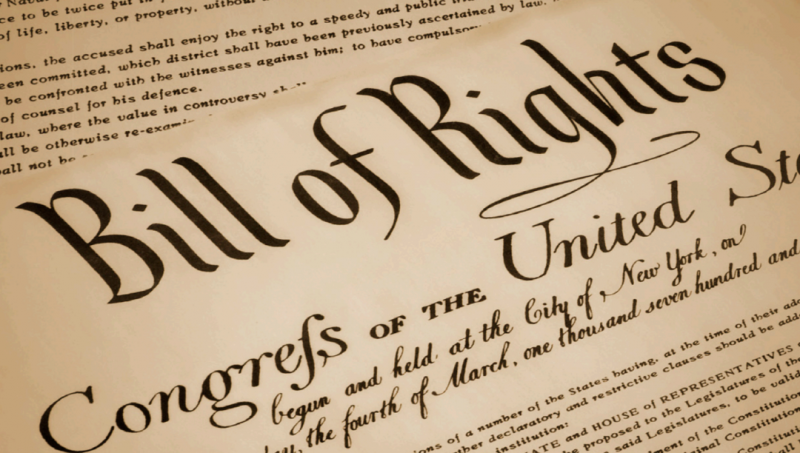 ce to be twice put in
of life, liberty, or property, without
ions, the accused shall enjoy the right to a speedy and public
een committed, which district shall have been previously ascertained by law,
be confronted with the witnesses against him; to have compulso
of counsel for his defence.
law, where the value in controversy
ll be otherwise re-exami
all not be
Bill of Rights
Congreſs OF THE United Sta
begun and held at the City of New York, on
the fourth of March, one thousand seven hundred and
ions of a number of the States having, at the time of their
ther declaratory and restrictive clauses should be adde
institution:
ATE and HOUSE of REPRESENTATIVES
be proposed to the Legislatures of the
said Legislatures, to be valid
ment of the Constitution
riginal Constitution